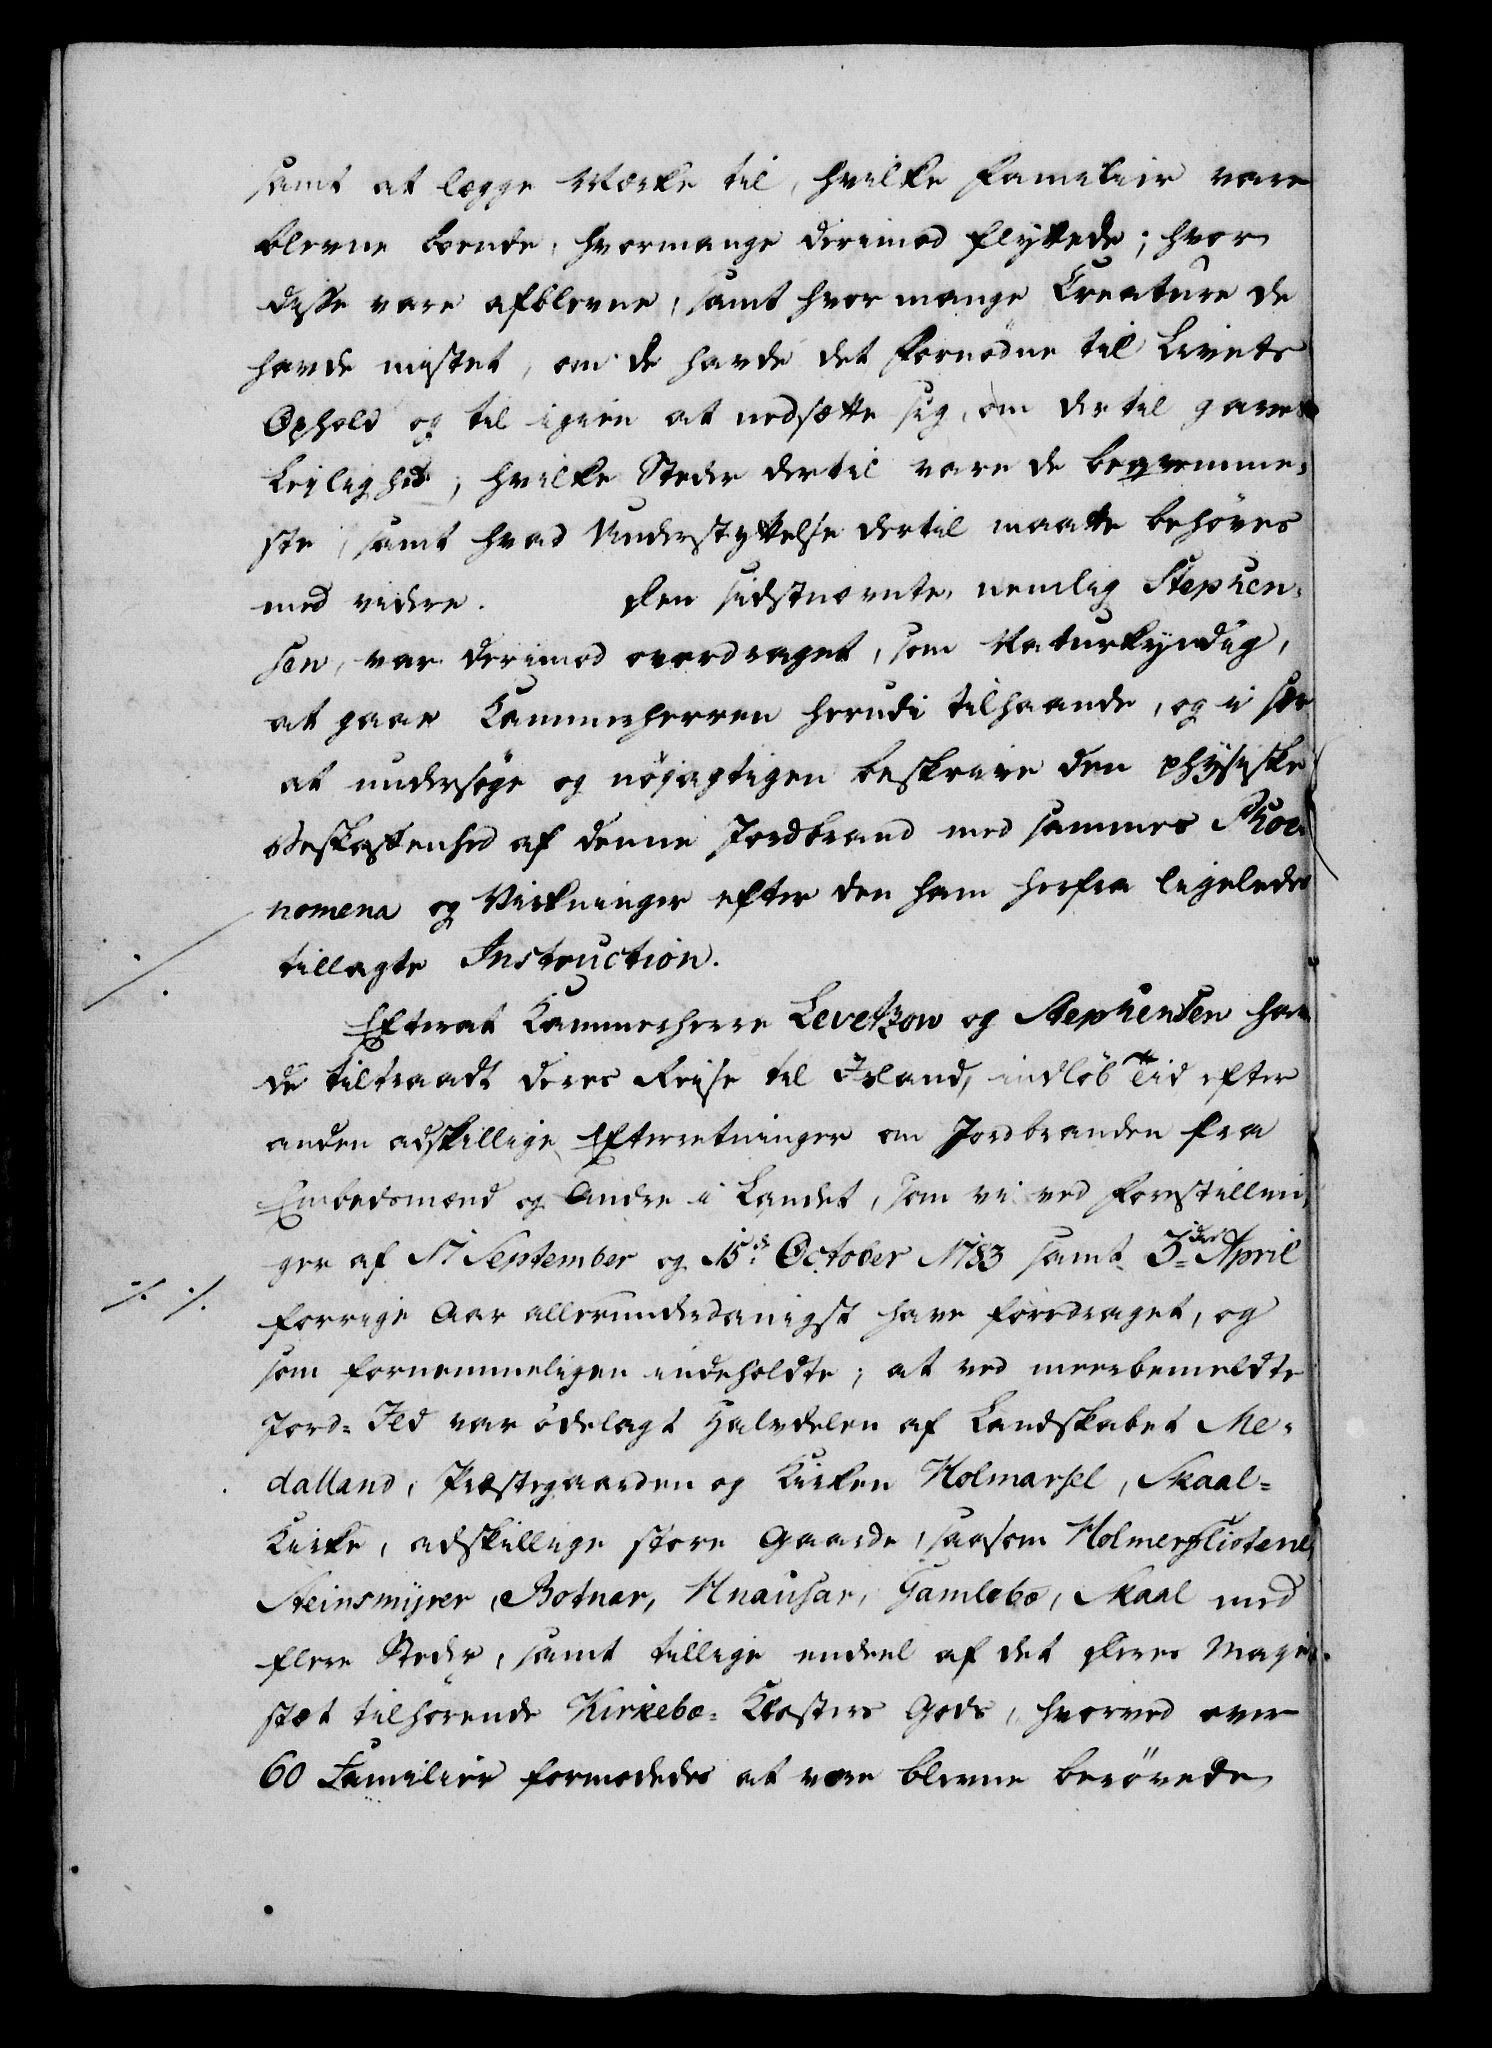 samt at lægge Mærke til, hvilke Familier vare
blevne boende, hvormange derimod flyttede; hvor
disse vare afblevne, samt hvor mange Creature de
havde mistet, om de havde det fornødne til Livets
Ophold og til igien at nedsætte sig, om dertil gaves
Leylighed; hvilke Steder dertil vare de beqvemme-
ste, samt hvad Understyttelse dertil maatte behøves
med videre. Den sidstnævnte, nemlig Stephen-
sen, var derimod overdraget, som Naturkyndig,
at gaae Kammerherren herudi tilhaande, og i sær
at undersøge og nøjagtigen beskrive den physiske
Beskaffenhed af denne Jordbrand med sammes Phoe-
nomena og Virkninger efter den ham herfra ligeledes
tillagte Instruction.
Efterat Kammerherre Levetzow og Stephensen hav-
de tiltraadt deres Reise til Island, indløb Tid efter
anden adskillige Efterretninger om Jordbranden fra
Embedsmænd og Andre i Landet, som vi ved Forestillin-
ger af 17 September og 15de October 1783 samt 5te April
forrige Aar allerunderdanigst have foredraget, og
som fornemmeligen indeholdte; at ved meerbemeldte
Jord-Ild var ødelagt Halvdelen af Landskabet Me-
dalland, Præstegaarden og Kirken Holmarsel, Skaal-
Kirke, adskillige store Gaarde, saasom Holmerfliotene,
Steinsmyrer, Botner, Hnausar, Gamlebæ, Skaal med
flere Steder, samt tillige endeel af det Deres Maje-
stæt tilhørende Kirkebæ-Klosters Gods, hvorved over
60 Familier formodedes at være blevne berøvede